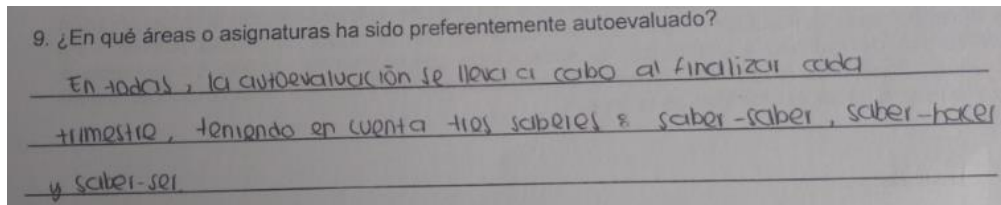 9. ¿En qué áreas o asignaturas ha sido preferentemente autoevaluado?
En todas, la autoevaluación se lleva a cabo al finalizar cada
trimestre, teniendo en cuenta tres saberes: saber-saber, saber-hacer
y saber-ser.